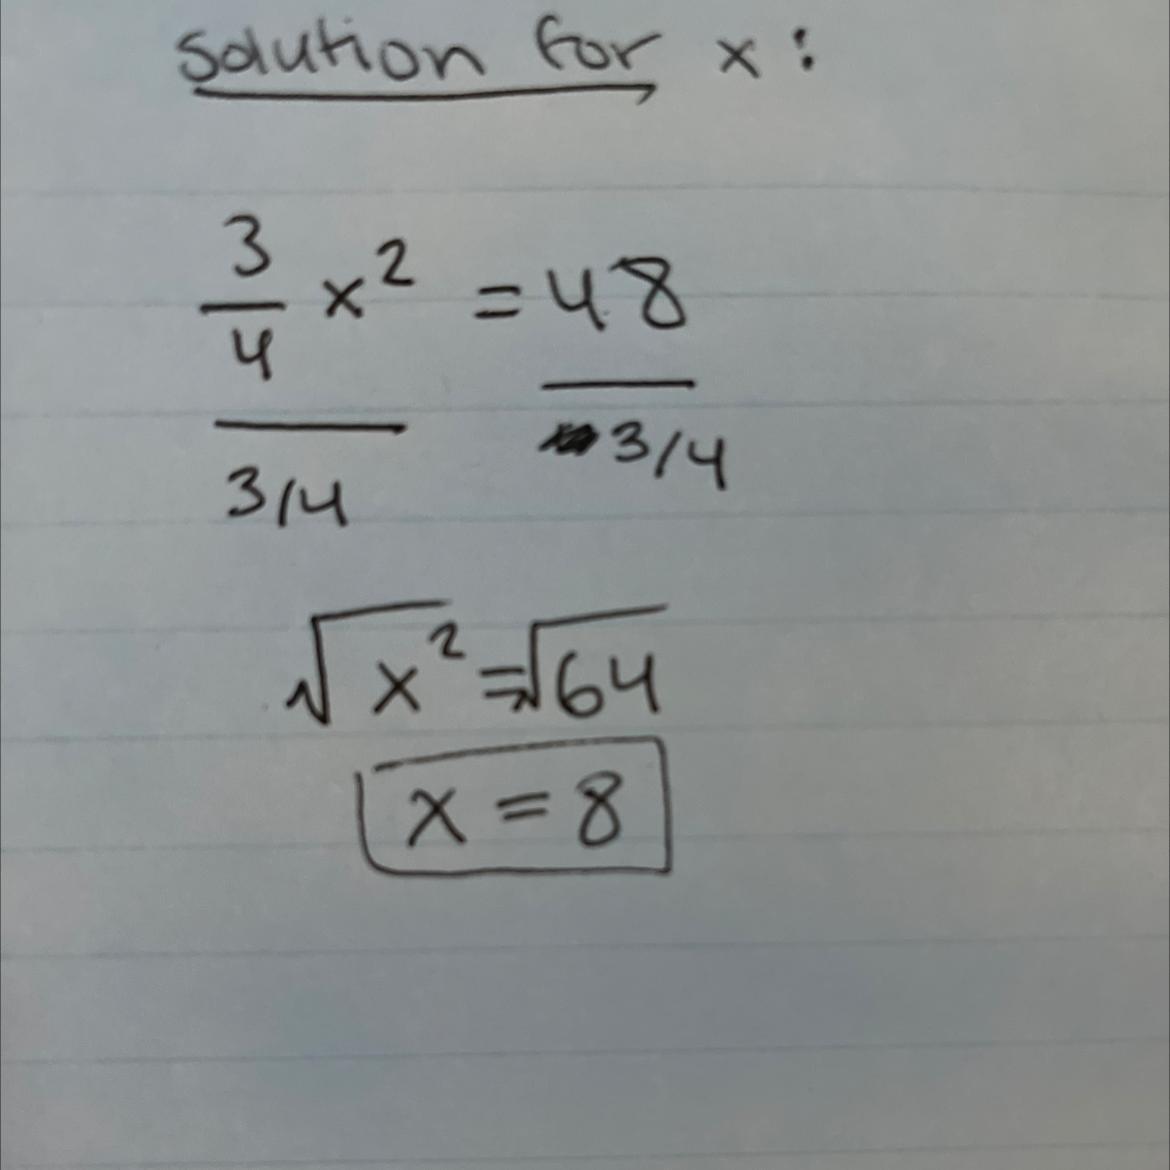 Solution for x:
3/4 x² = 48
3/4 3/4
√x² = √64
x = 8